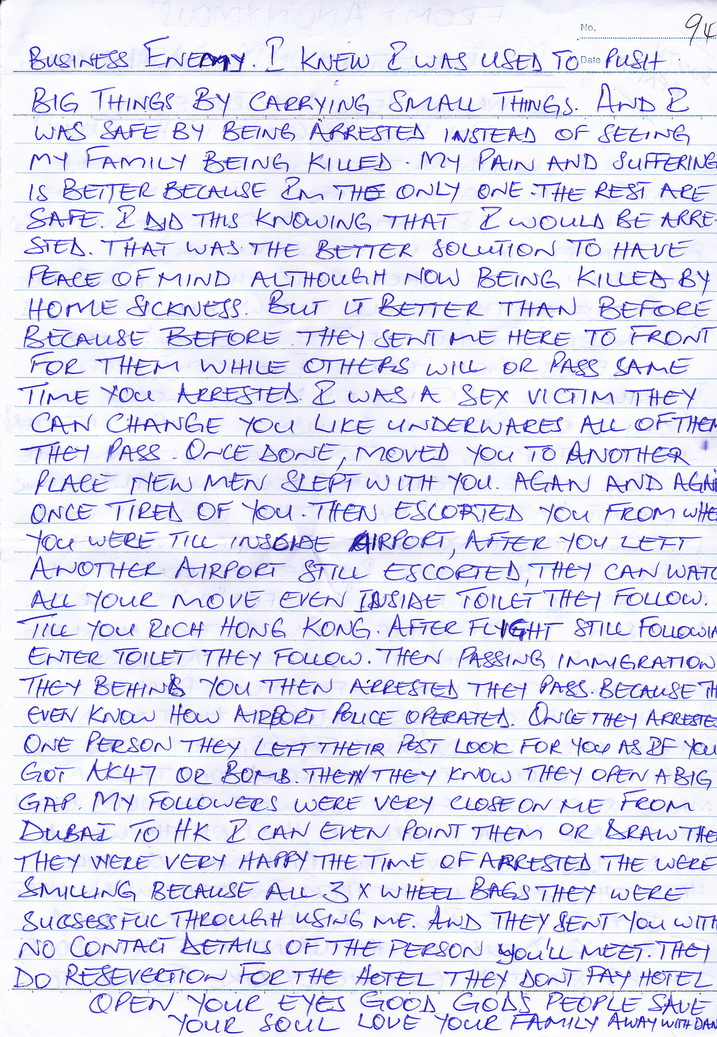 No. 94
BUSINESS ENEMY. I KNEW I WAS USED TO Date PUSH
BIG THINGS BY CARRYING SMALL THINGS. AND I
WAS SAFE BY BEING ARRESTED INSTEAD OF SEEING
MY FAMILY BEING KILLED. MY PAIN AND SUFFERING
IS BETTER BECAUSE IM THE ONLY ONE. THE REST ARE
SAFE. I DID THIS KNOWING THAT I WOULD BE ARRE-
STED. THAT WAS THE BETTER SOLUTION TO HAVE
PEACE OF MIND ALTHOUGH NOW BEING KILLED BY
HOME SICKNESS. BUT IT BETTER THAN BEFORE
BECAUSE BEFORE THEY SENT ME HERE TO FRONT
FOR THEM WHILE OTHERS WILL OR PASS SAME
TIME YOU ARRESTED. I WAS A SEX VICTIM THEY
CAN CHANGE YOU LIKE UNDERWARES ALL OF THEM
THEY PASS. ONCE DONE, MOVED YOU TO ANOTHER
PLACE NEW MEN SLEPT WITH YOU. AGAIN AND AGAI
ONCE TIRED OF YOU. THEN ESCORTED YOU FROM WHE
YOU WERE TILL INSIDE AIRPORT, AFTER YOU LEFT
ANOTHER AIRPORT STILL ESCORTED, THEY CAN WATC
ALL YOUR MOVE EVEN INSIDE TOILET THEY FOLLOW.
TILL YOU RICH HONG KONG. AFTER FLIGHT STILL FOLLOWIN
ENTER TOILET THEY FOLLOW. THEN PASSING IMMIGRATION
THEY BEHIND YOU THEN ARRESTED THEY PASS. BECAUSE TH
EVEN KNOW HOW AIRPORT POLICE OPERATED. ONCE THEY ARRESTED
ONE PERSON THEY LEFT THEIR POST LOOK FOR YOU AS IF YOU
GOT AK47 OR BOMB. THEN THEY KNOW THEY OPEN A BIG
GAP. MY FOLLOWERS WERE VERY CLOSE ON ME FROM
DUBAI TO HK I CAN EVEN POINT THEM OR DRAW THE
THEY WERE VERY HAPPY THE TIME OF ARRESTED THE WERE
SMILLING BECAUSE ALL 3 X WHEEL BAGS THEY WERE
SUCSESSFUL THROUGH USING ME. AND THEY SENT YOU WITH
NO CONTACT DETAILS OF THE PERSON YOU'LL MEET. THEY
DO RESEVERTION FOR THE HOTEL THEY DONT PAY HOTEL
OPEN YOUR EYES GOOD GODS PEOPLE SAVE
YOUR SOUL LOVE YOUR FAMILY AWAY WITH DAN